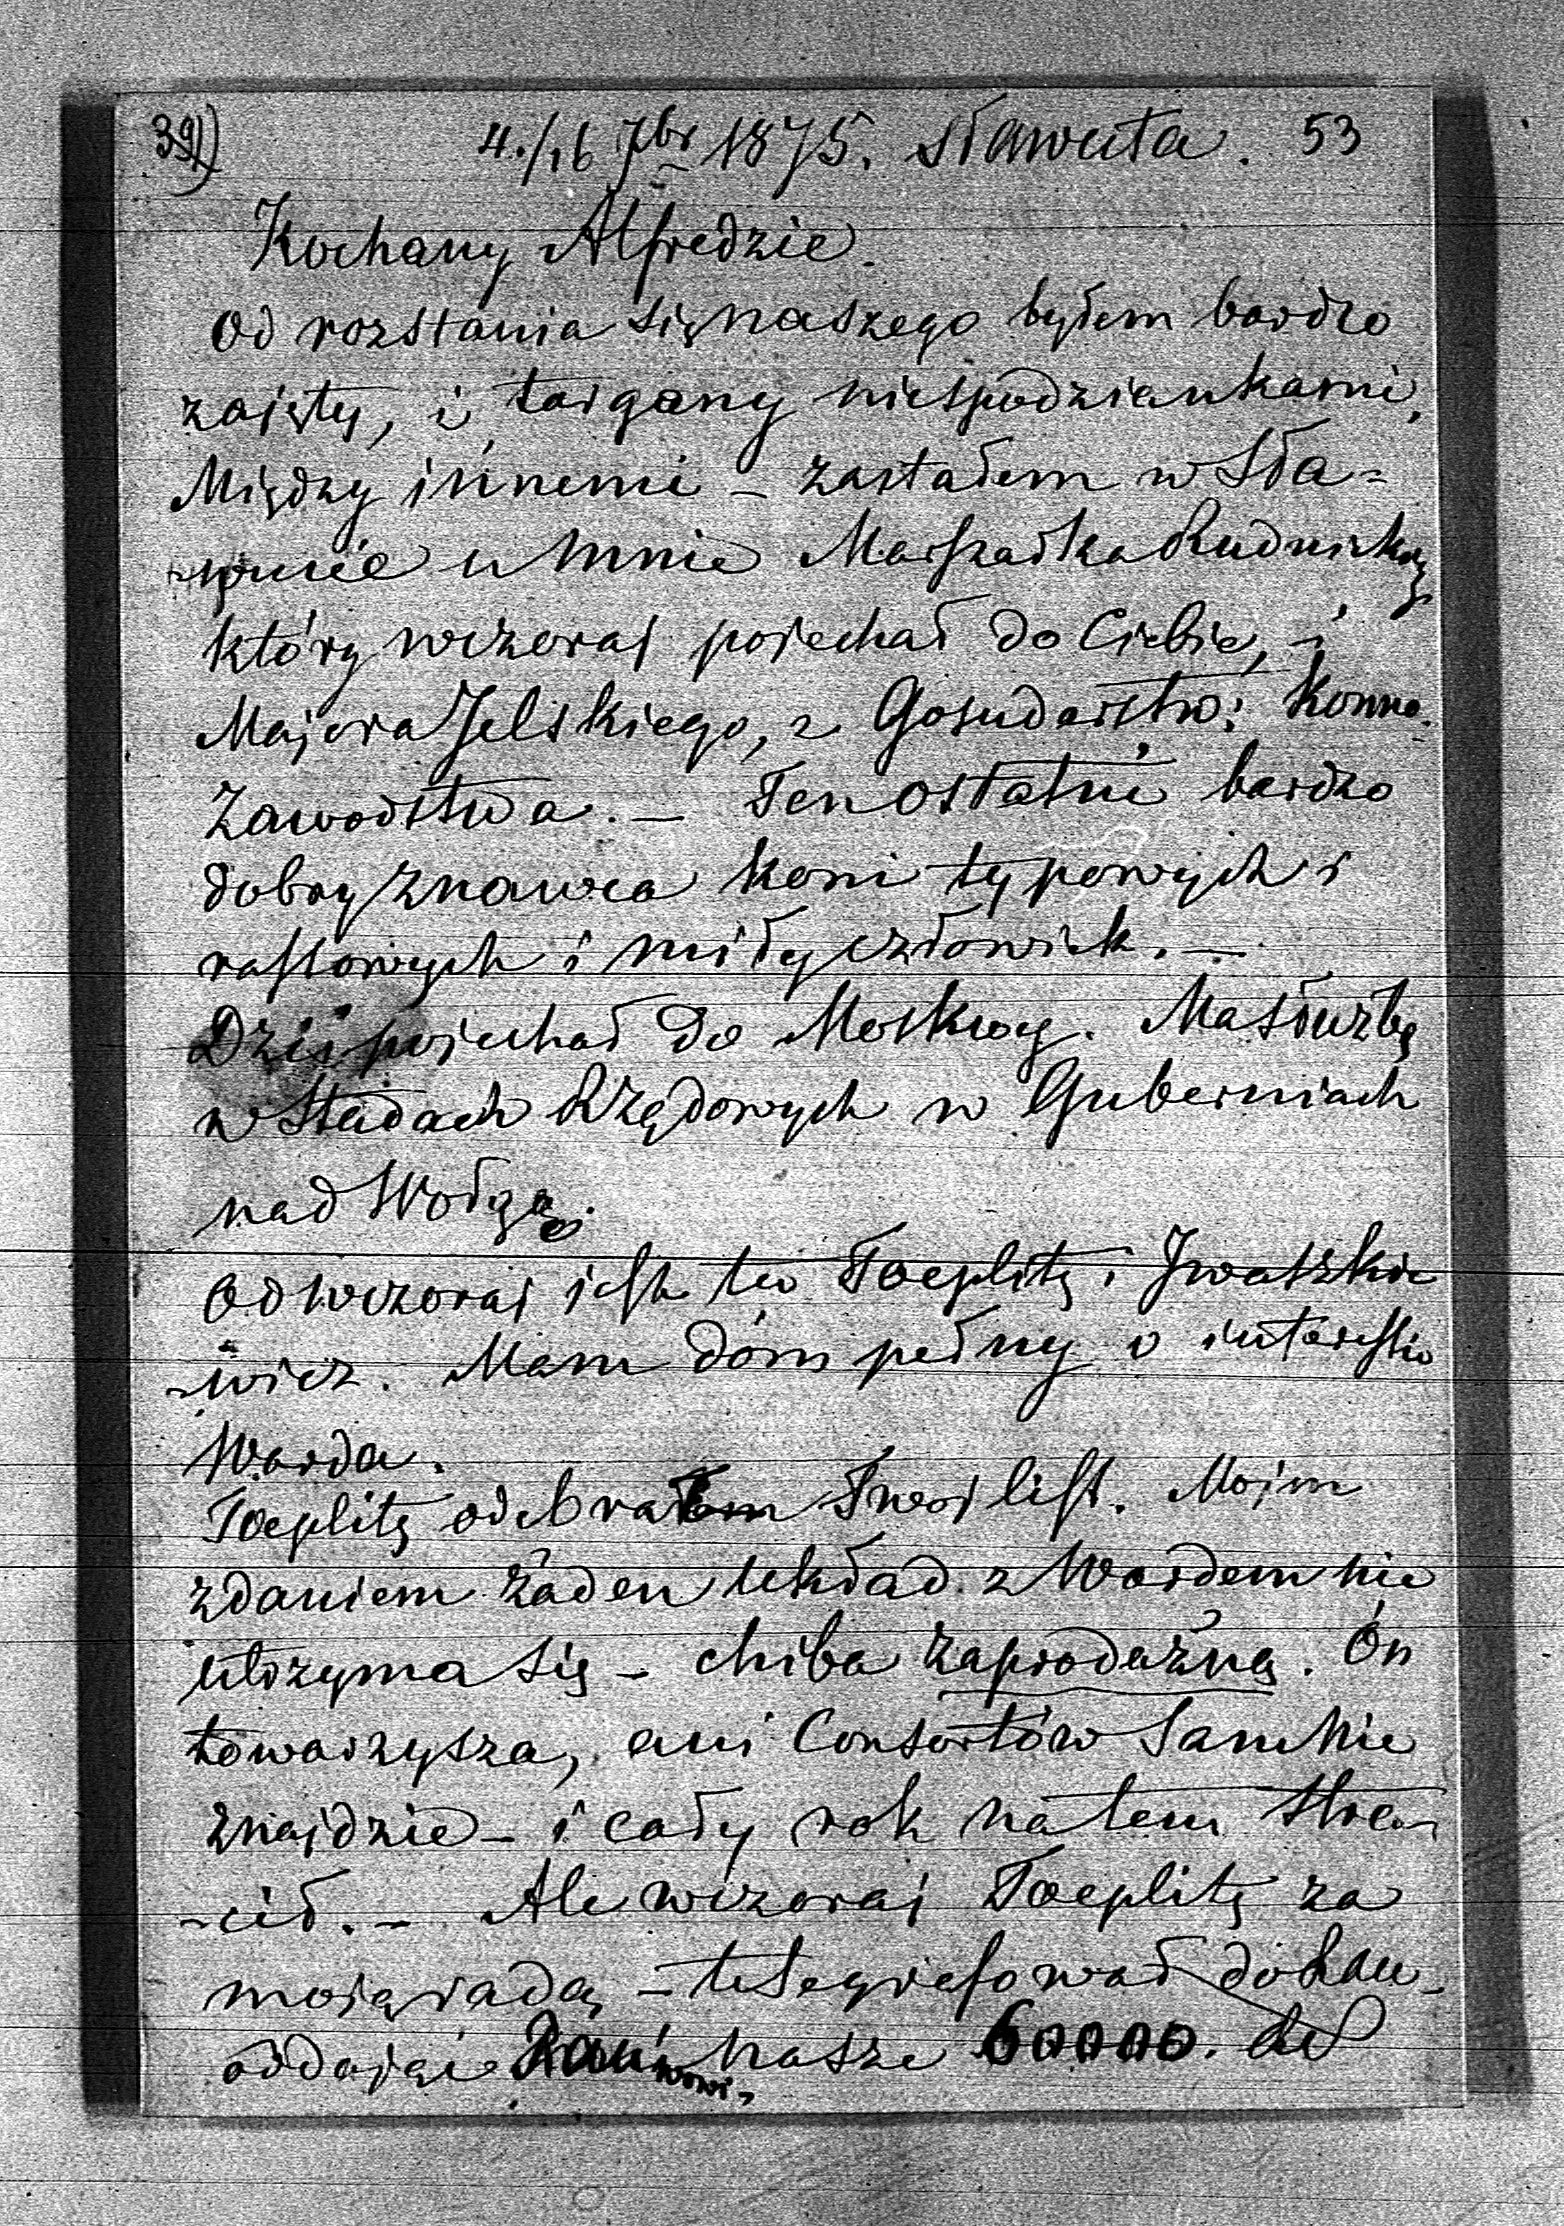 39) 4./16 7br 1875. Sławuta. 53
Kochany Alfredzie.
Od rozstania się naszego byłem bardzo
zajęty, i targany niespodziankami,
Między innemi – zastałem w Sła-
-wucie u mnie Marszałka Rudnickiego
który wczoraj pojechał do Ciebie, i
Majora Jelskiego, z Gosudarstw: Konno.
Zawodstwa. – Ten ostatni bardzo
dobry znawca koni typowych i
rassowych i miły człowiek. –
Dziś pojechał do Moskwy. Ma służbę
w Stadach Rzędowych w Guberniach
nad Wołgą.
Od wczoraj jest tu Toeplitz i Iwaszkie
-wicz. Mam dom pełny o interessie
Warda.
Toeplitz odebrałem Twój list. Moim
zdaniem żaden układ z Wardem nie
utrzyma się – chiba zaprodażną. On
towarzysza, ani Consortów Sam nie
znajdzie – i cały rok na tem stra-
-cił. – Ale wczoraj Toeplitz za
moją radą – telegrafował do
oddając nasze 60000.